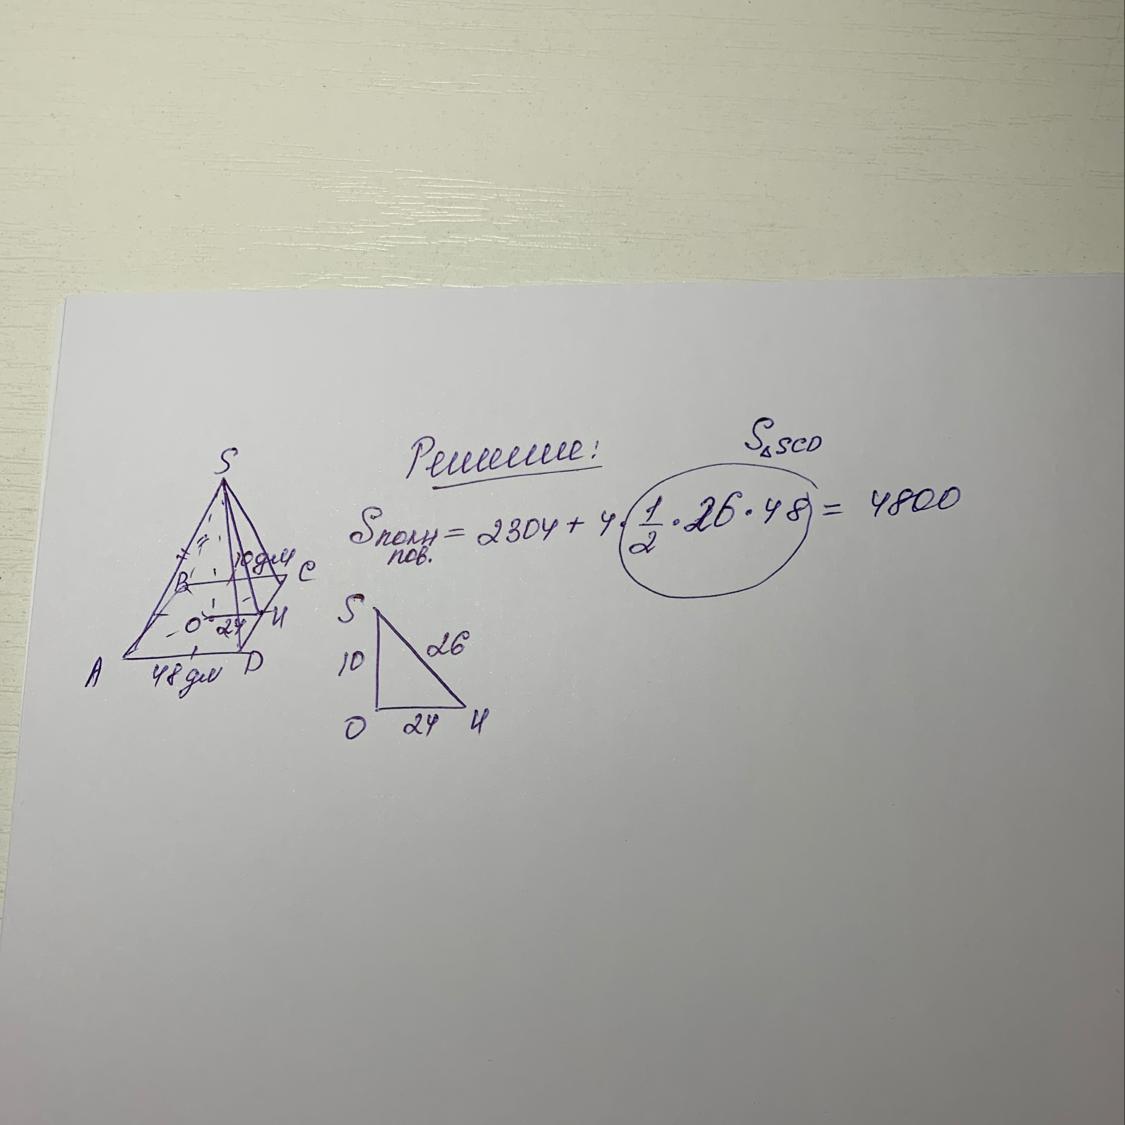 Решение:
S△SCD
Sполн пов. = 2304 + 4 · 1/2 · 26 · 48 = 4800
S
10дм
B
C
O
24
H
A
48дм
D
S
10
26
O
24
H